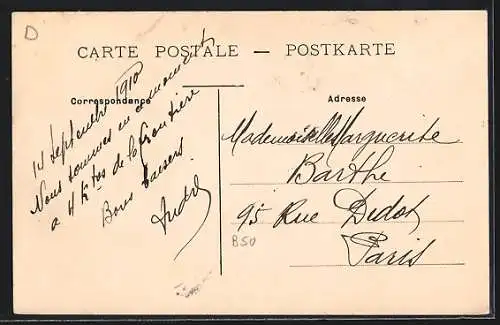 D
CARTE POSTALE — POSTKARTE
Correspondance
14 Septembre 1910
Nous sommes en ce moment
à 4 K tres de la Frontière
Bons baisers
André
Adresse
Mademoiselle Marguerite
Barthe
95 Rue Didot
Paris
B50